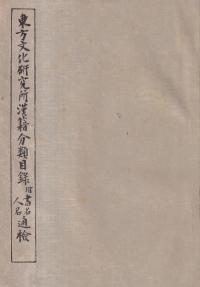 東方文化研究所漢籍分類目録 附書名人名通檢